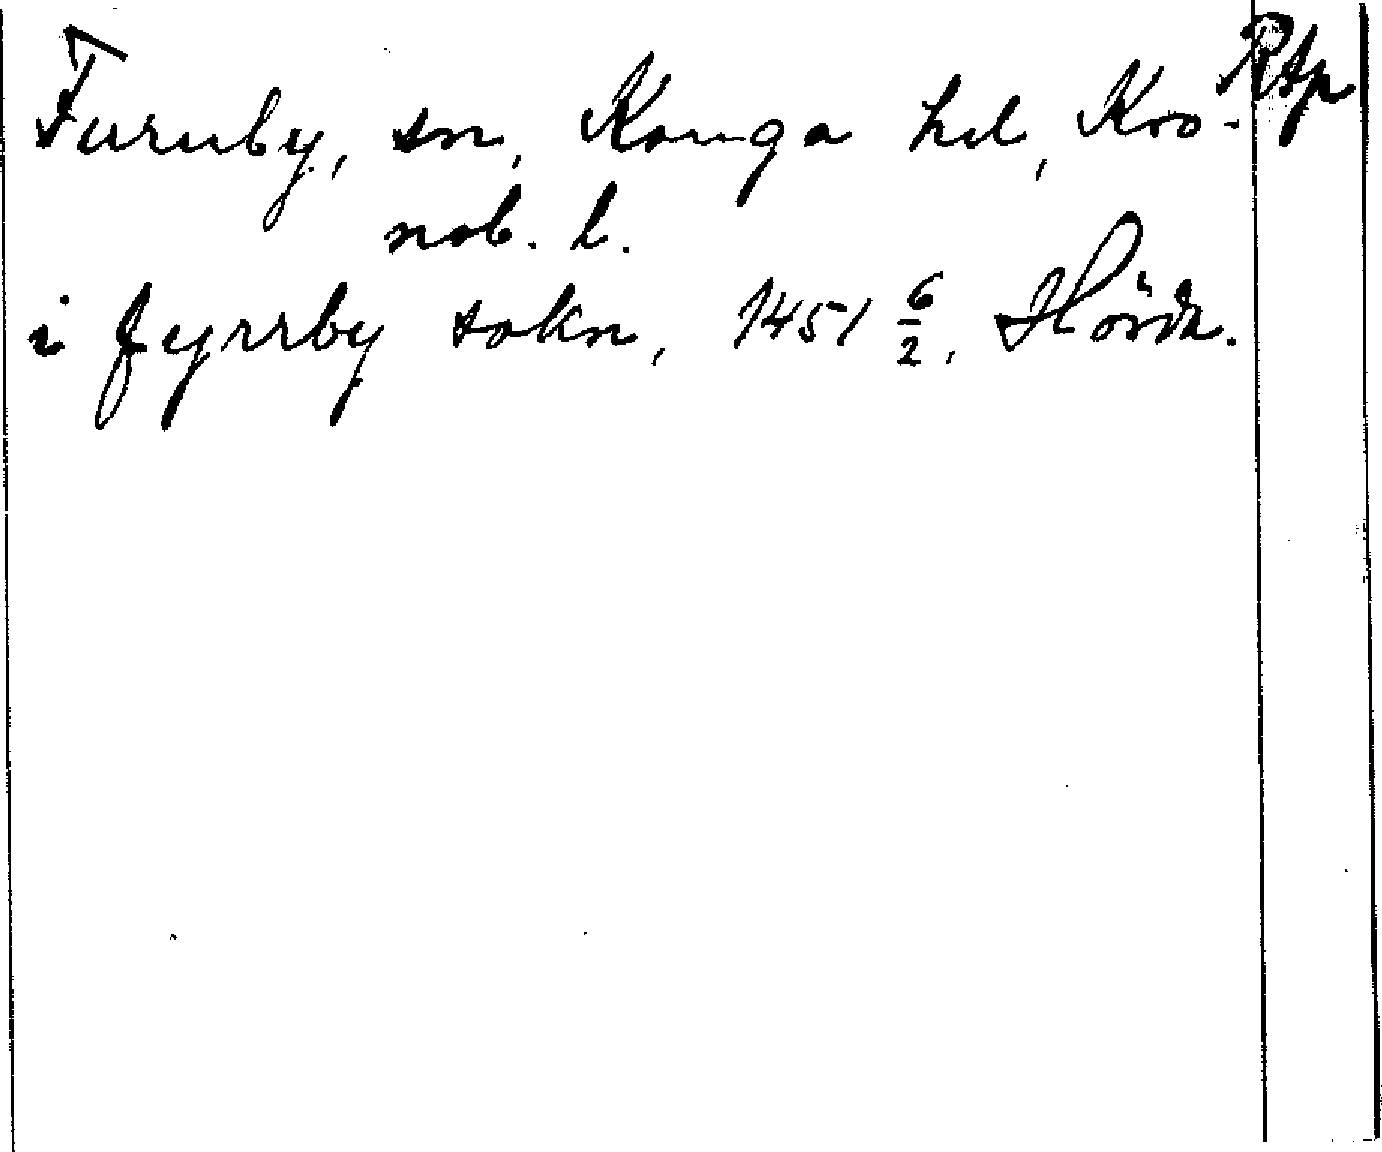 Furuby, sn, Konga hd, Kro- Rtp
nob. l.
i fyrrby sokn, 1451 6/2, Hörda.